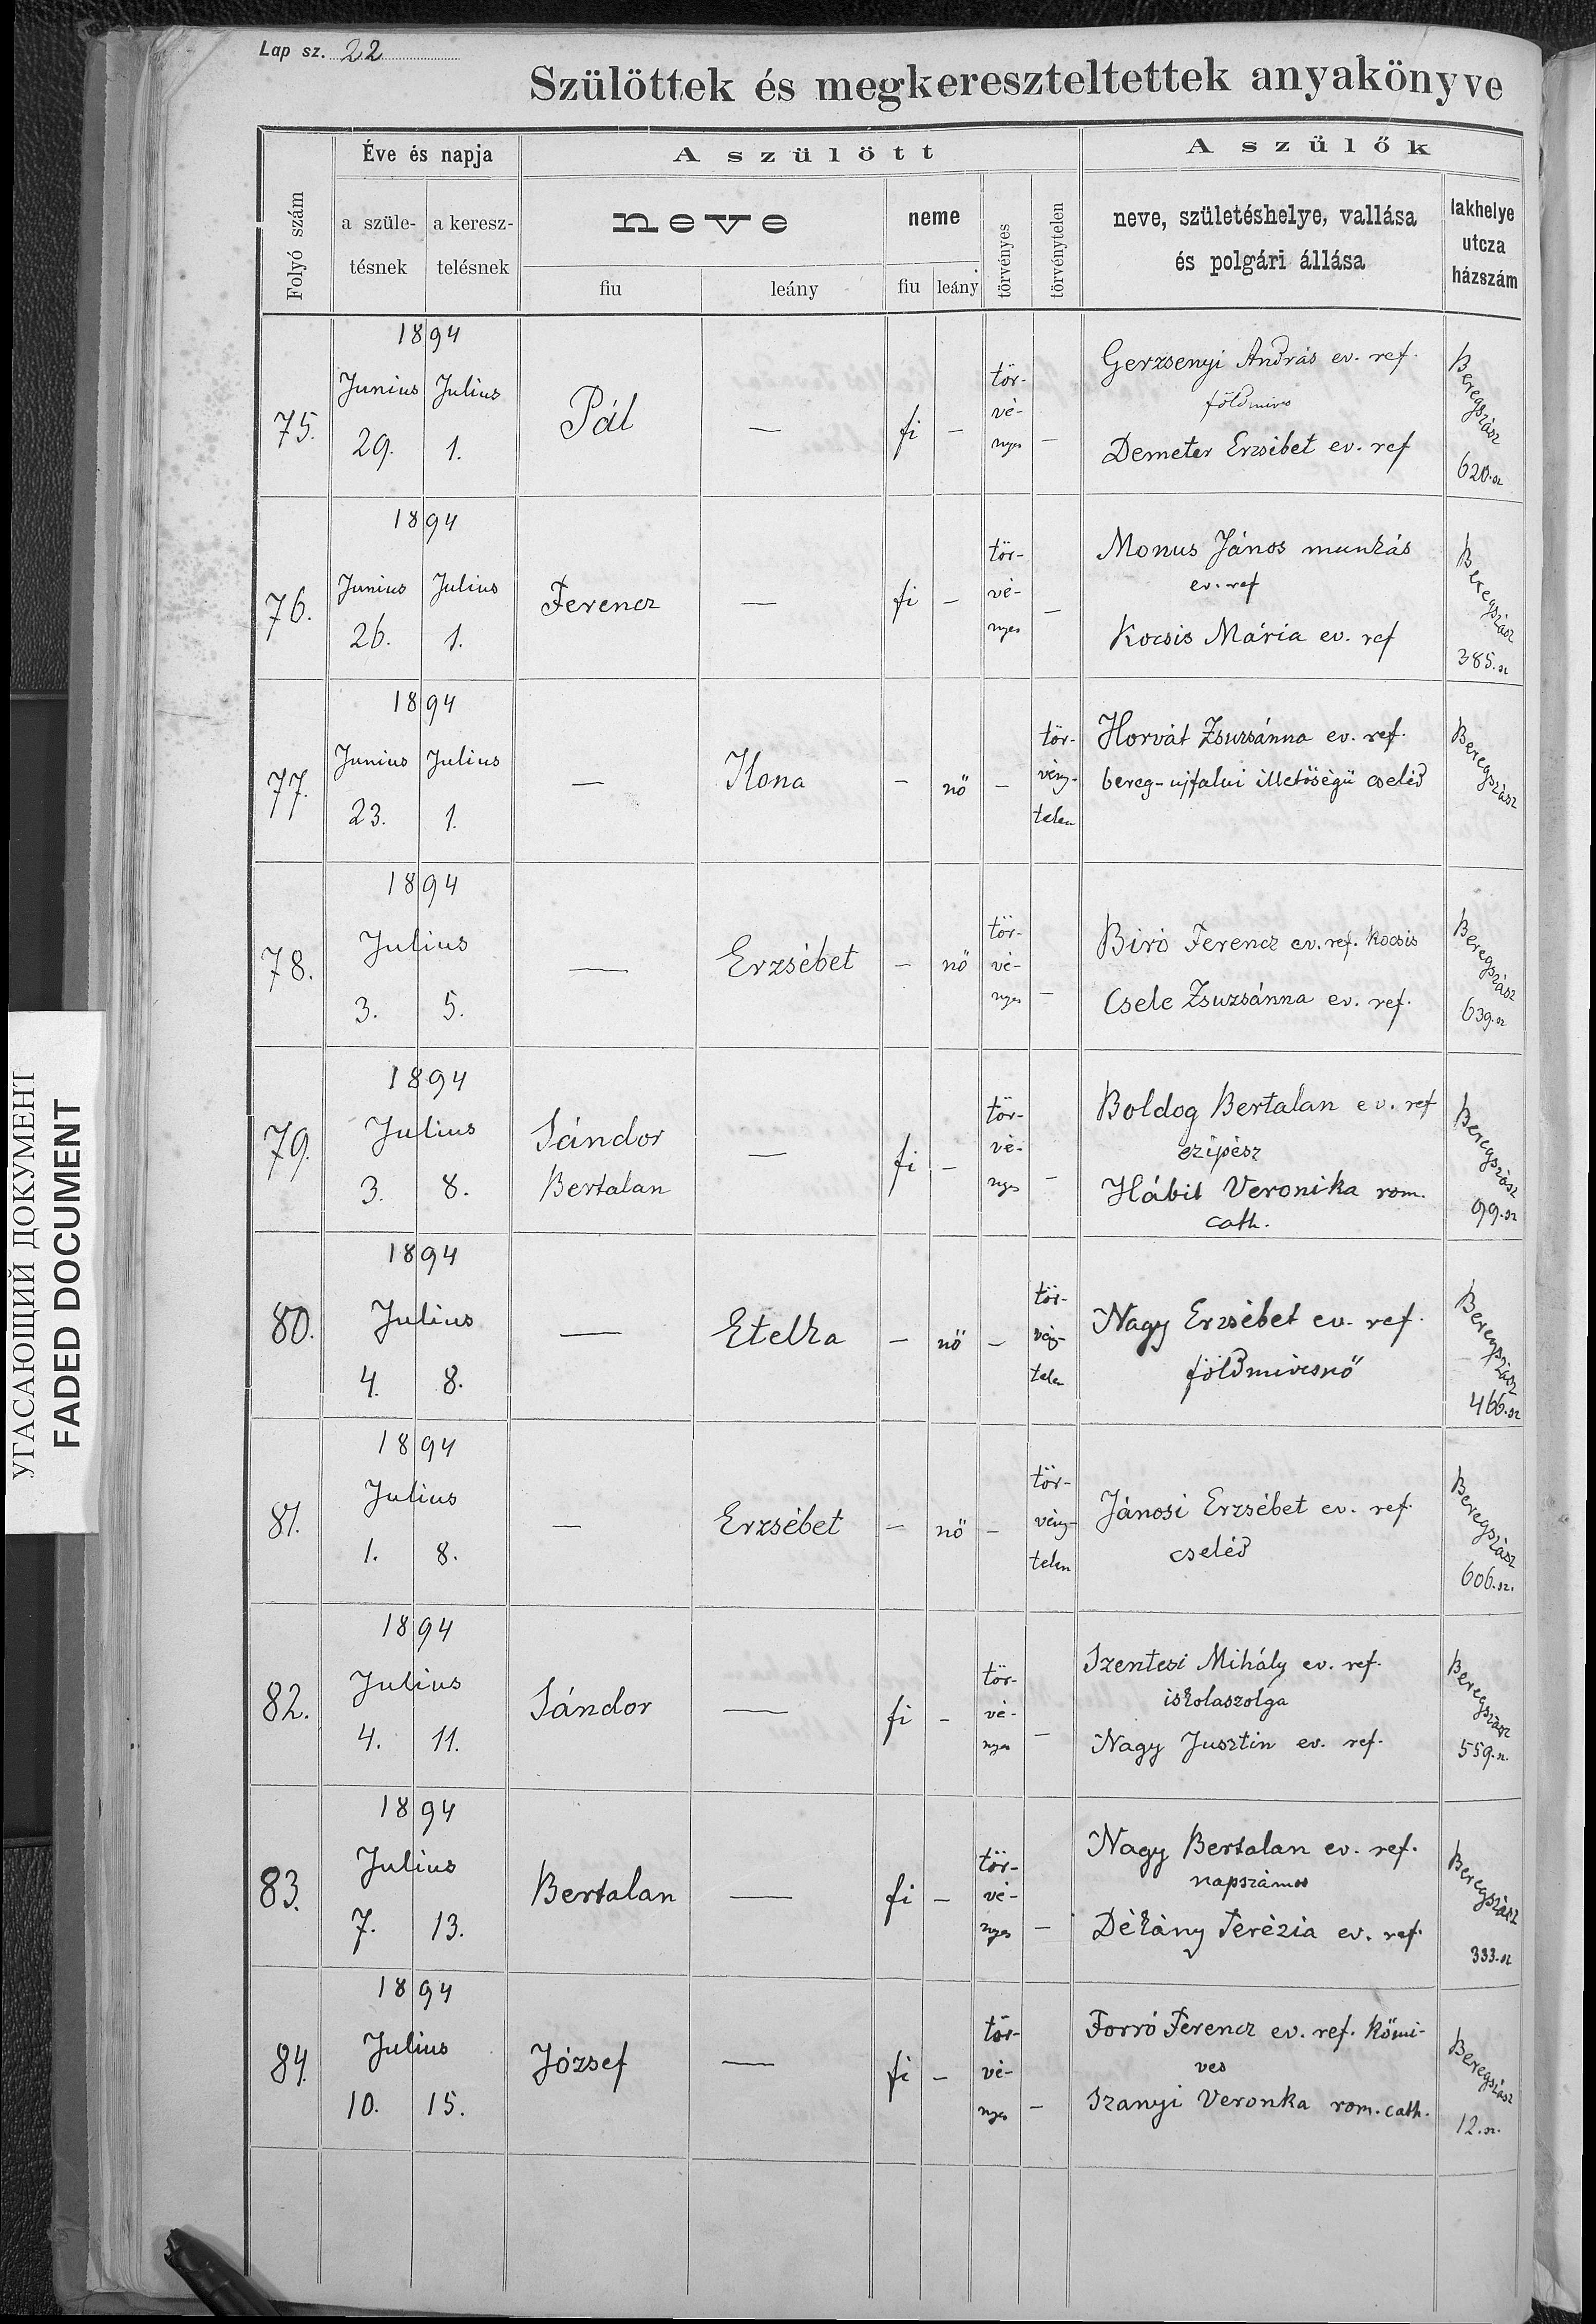 Lap sz. 22
Szülöttek és megkereszteltettek anyakönyve
Folyó szám
Éve és napja
a szüle-
tésnek
a keresz-
telésnek
A szülött
neve
fiu
leány
neme
fiu
leány
törvényes
törvénytelen
A szülők
neve, születéshelye, vallása
és polgári állása
lakhelye
utcza
házszám
75.
1894
Junius
29.
Julius
1.
Pál
—
fi
—
tör-
vé-
nyes
—
Gerzsenyi András ev. ref.
földmives
Demeter Erzsibet ev. ref
Beregszász
620. sz
76.
1894
Junius
26.
Julius
1.
Ferencz
—
fi
—
tör-
vé-
nyes
—
Monus János munkás
ev. ref
Kocsis Mária ev. ref
Beregszász
385. sz
77.
1894
Junius
23.
Julius
1.
—
Ilona
—
nö
—
tör-
vény-
telen
Horvát Zsuzsánna ev. ref.
bereg-ujfalui illetőségü cseléd
Beregszász
78.
1894
Julius
3.
5.
—
Erzsébet
—
nö
tör-
vé-
nyes
—
Biró Ferencz ev. ref. kocsis
Csele Zsuzsánna ev. ref.
Beregszász
639. sz
79.
1894
Julius
3.
8.
Sándor
Bertalan
—
fi
—
tör-
vé-
nyes
—
Boldog Bertalan ev. ref
czipész
Hábit Veronika rom.
cath.
Beregszász
99. sz
80.
1894
Julius
4.
8.
—
Etelka
—
nö
—
tör-
vény-
telen
Nagy Erzsébet ev. ref.
földmivesnő
Beregszász
466. sz
81.
1894
Julius
1.
8.
—
Erzsébet
—
nö
—
tör-
vény-
telen
Jánosi Erzsébet ev. ref.
cseléd
Beregszász
606. sz.
82.
1894
Julius
4.
11.
Sándor
—
fi
—
tör-
vé-
nyes
—
Szentesi Mihály ev. ref.
iskolaszolga
Nagy Jusztin ev. ref.
Beregszász
559. sz.
83.
1894
Julius
7.
13.
Bertalan
—
fi
—
tör-
vé-
nyes
—
Nagy Bertalan ev. ref.
napszámos
Dékány Terézia ev. ref.
Beregszász
333. sz
84.
1894
Julius
10.
15.
József
—
fi
—
tör-
vé-
nyes
—
Forró Ferencz ev. ref. kőmi-
ves
Szanyi Veronka rom. cath.
Beregszász
12. sz.
УГАСАЮЩИЙ ДОКУМЕНТ
FADED DOCUMENT